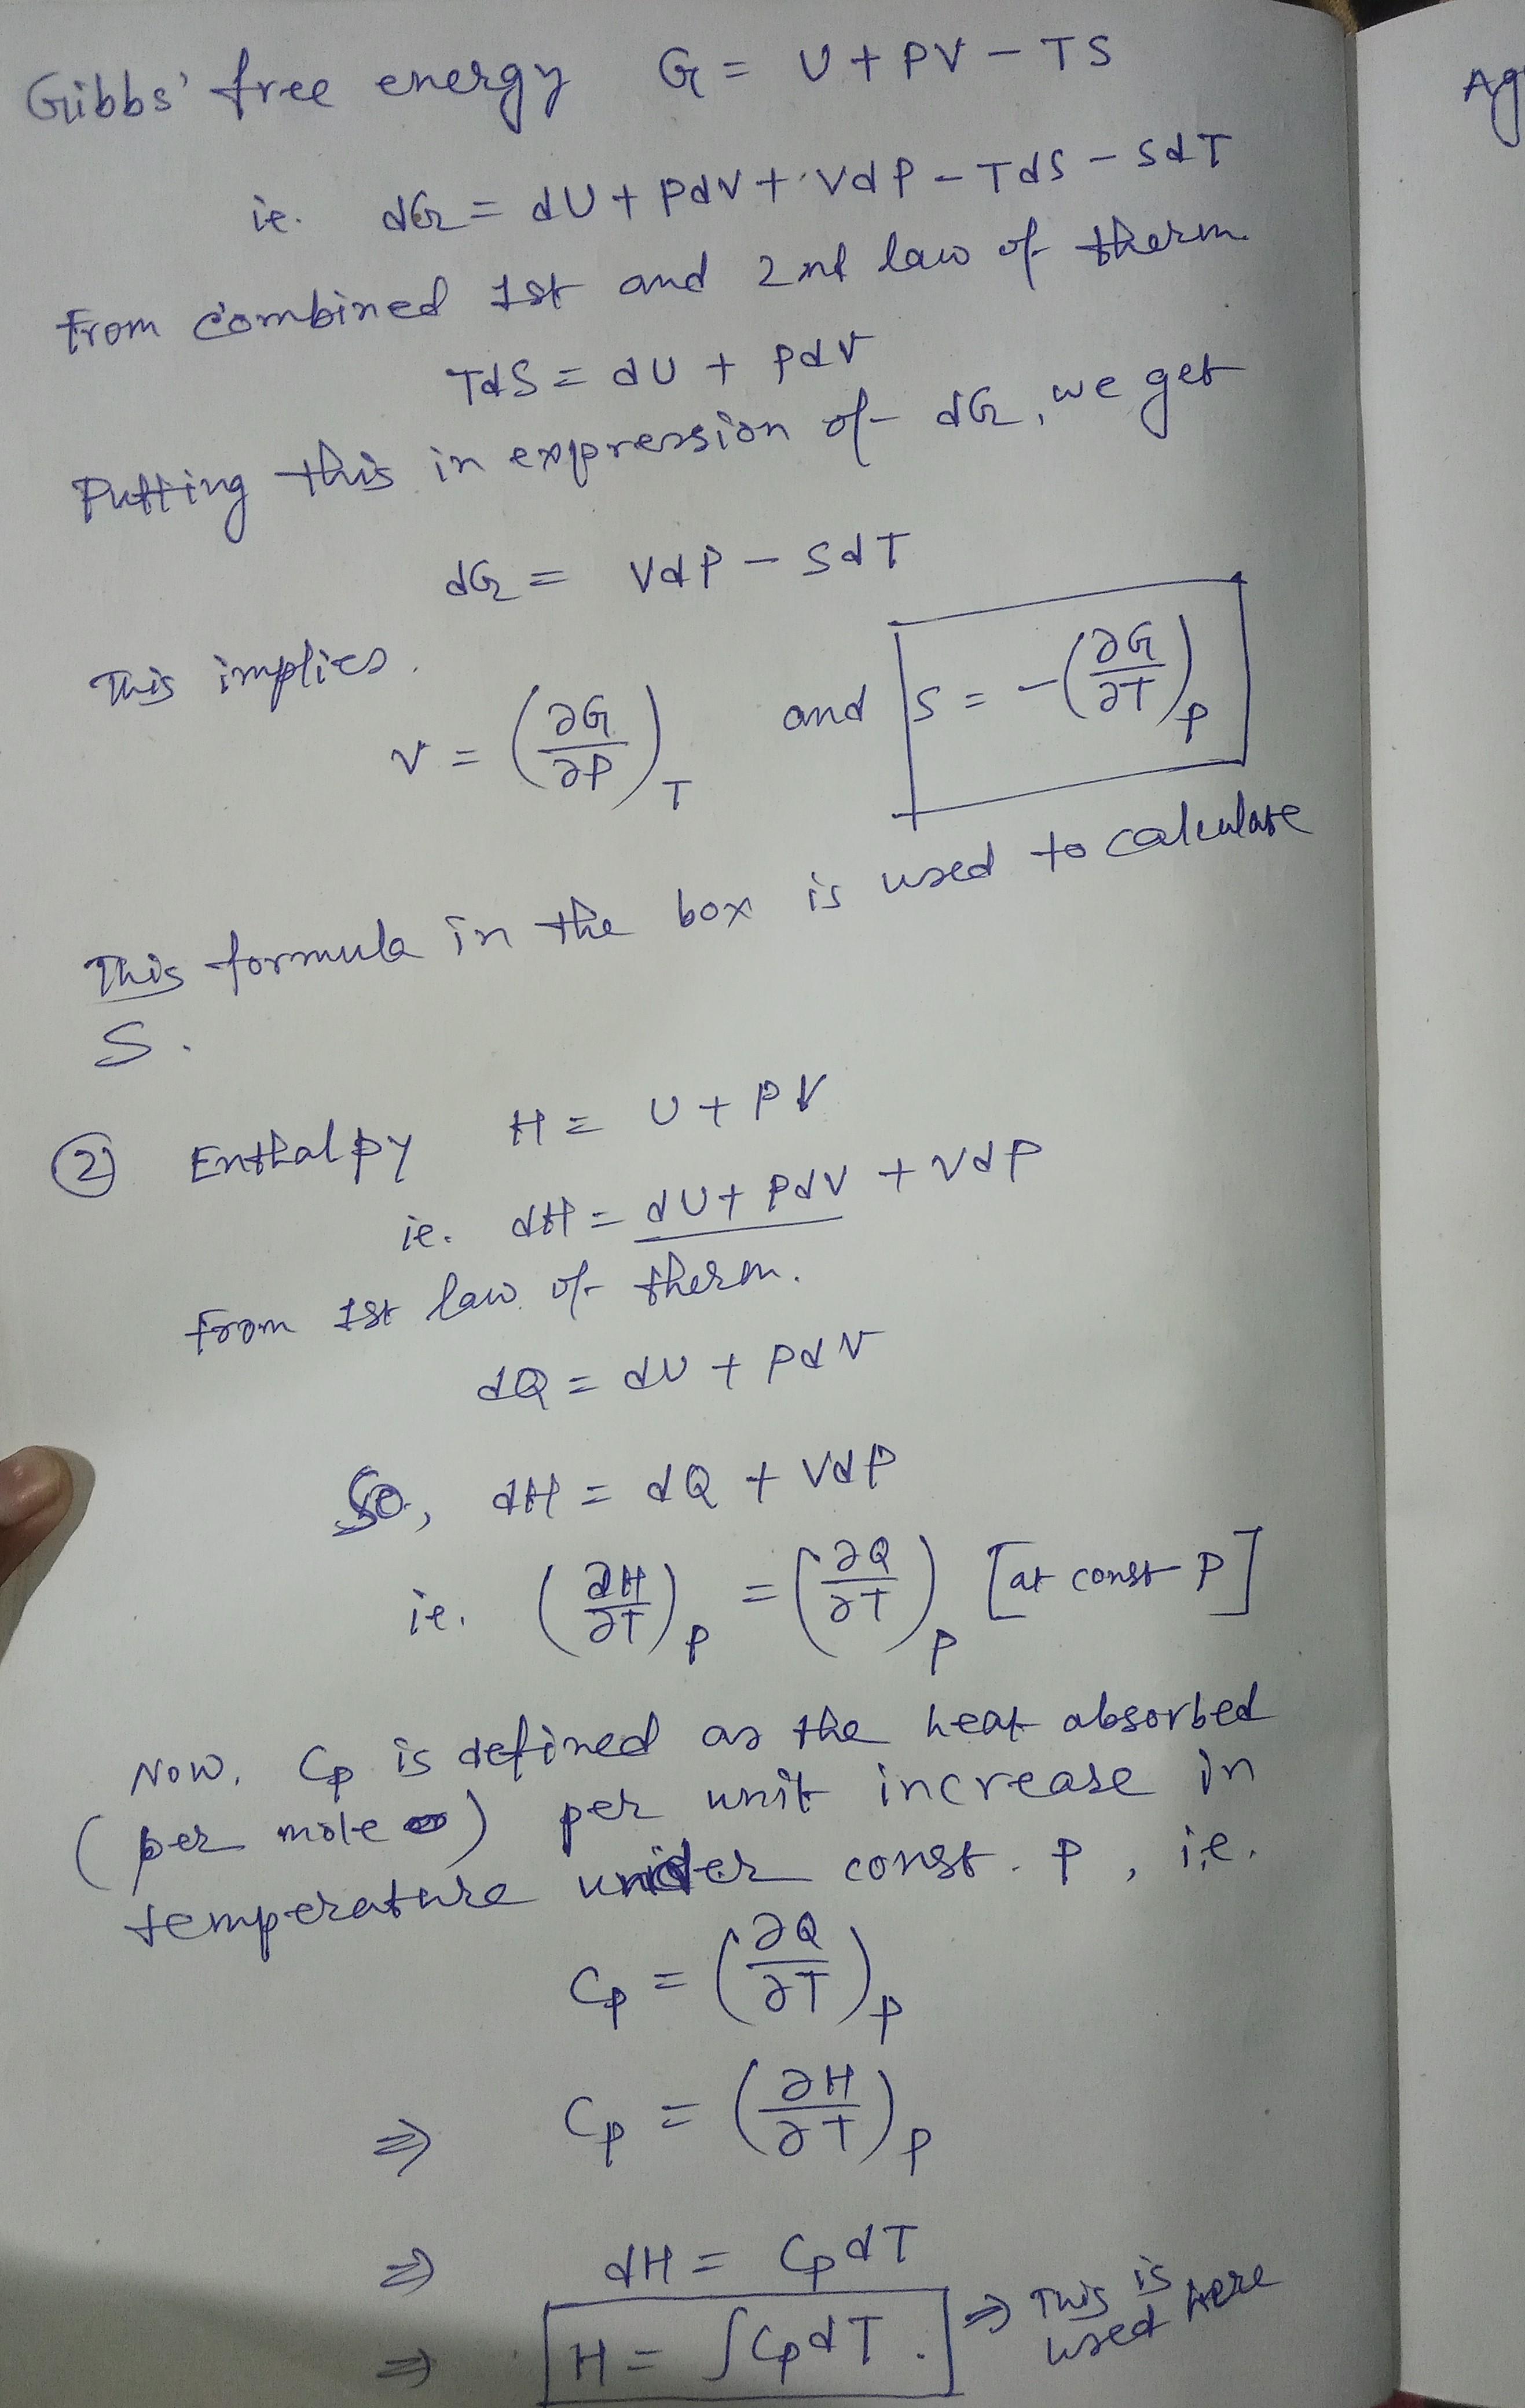 Gibbs' free energy G = U + PV - TS
ie. dG = dU + PdV + VdP - TdS - SdT
From combined 1st and 2nd law of therm.
TdS = dU + PdV
Putting this in expression of dG, we get
dG = VdP - SdT
This implies.
V = (∂G/∂P)_T and S = -(∂G/∂T)_P
This formula in the box is used to calculate
S.
② Enthalpy H = U + PV
ie. dH = dU + PdV + VdP
From 1st law of therm.
dQ = dU + PdV
So, dH = dQ + VdP
ie. (∂H/∂T)_P = (∂Q/∂T)_P [at const P]
Now, Cp is defined as the heat absorbed
(per mole) per unit increase in
temperature under const. P, i.e.
Cp = (∂Q/∂T)_P
⇒ Cp = (∂H/∂T)_P
⇒ dH = CpdT
⇒ H = ∫CpdT. ⇒ This is used here
Ag